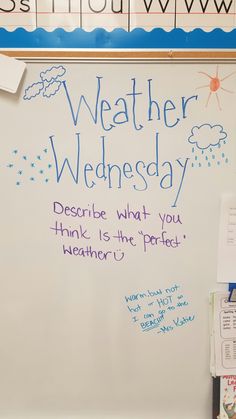 Ss Tt Uu Vv Ww
Weather
Wednesday
Describe what you
think is the "perfect"
weather ü
warm but not
hot or HOT so
I can go to the
BEACH!
-Mrs Katie